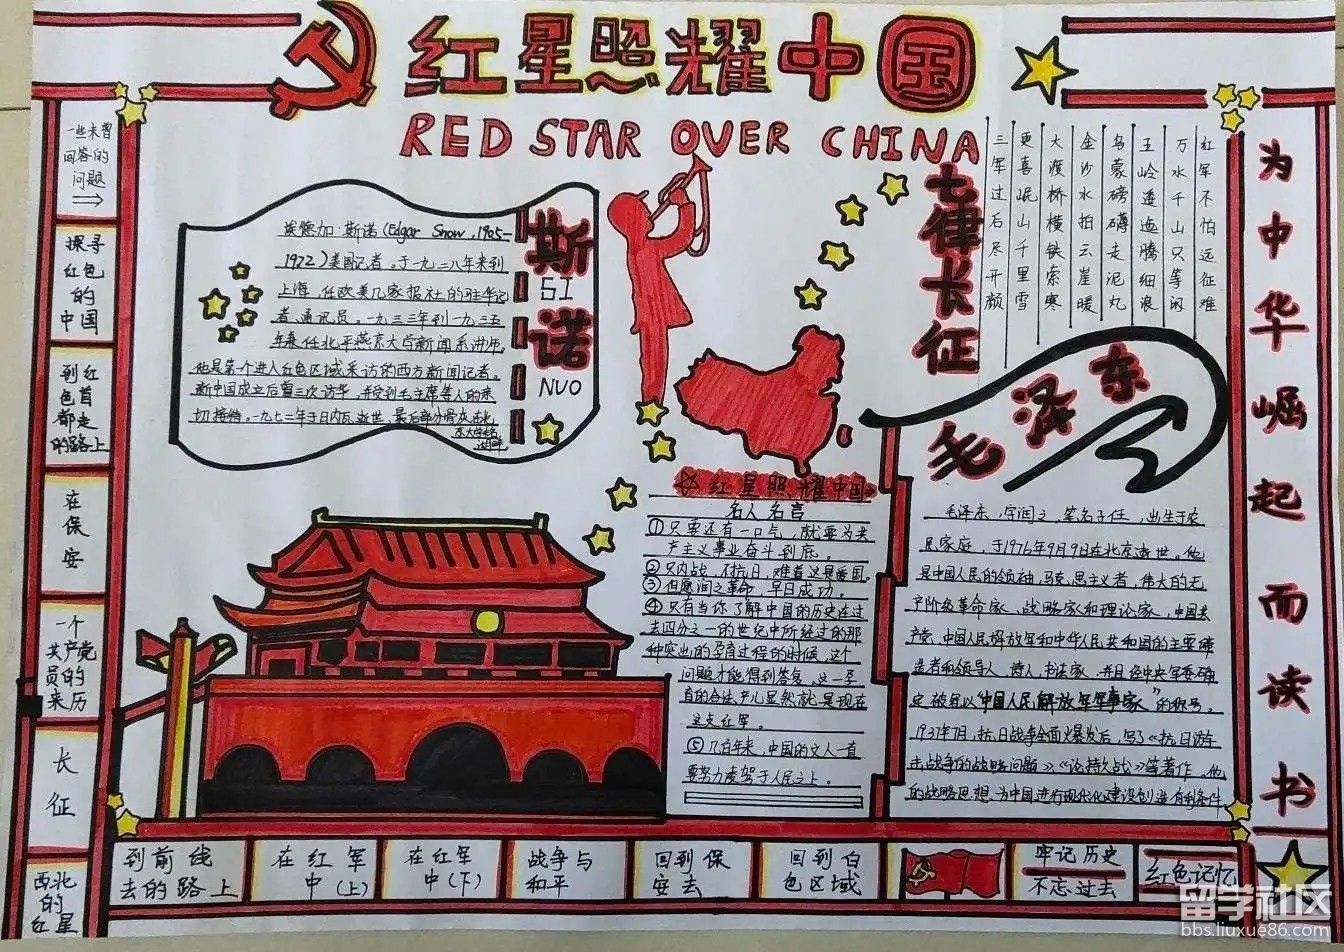 红星照耀中国
RED STAR OVER CHINA
一些未曾
回答的
问题
探寻
红色
的
中国
到红
色首
都走
的路上
在
保
安
一个
共产党
员的
来历
长
征
西北
的
红星
埃德加·斯诺(Edgar Snow,1905-
1972)美国记者。于一九二八年来到
上海,任欧美几家报社的驻华记
者、通讯员。一九三三年到一九三五
年兼任北平燕京大学新闻系讲师。
他是第一个进入红色区域采访的西方新闻记者。
新中国成立后曾三次访华,并受到毛主席等人的亲
切接待。一九七二年于日内瓦逝世,最后部分骨灰在北
斯
SI
诺
NUO
七律长征
红军不怕远征难
万水千山只等闲
五岭逶迤腾细浪
乌蒙磅礴走泥丸
金沙水拍云崖暖
大渡桥横铁索寒
更喜岷山千里雪
三军过后尽开颜
毛泽东
为中华崛起而读书
红星照耀中国
名人名言
①只要还有一口气,就要为共
产主义事业奋斗到底。
②只内战,不抗日,难着这是爱国。
③但愿润之革命,早日成功。
④只有当你了解中国的历史在过
去四分之一的世纪中所经过的那
种突出的孕育过程的时候,这个
问题才能得到答复。这一孕
直的合法产儿显然就是现在
这支红军。
⑤几百年来,中国的文人一直
要努力凌驾于人民之上。
毛泽东,字润之,笔名子任,出生于农
民家庭,于1976年9月9日在北京逝世。他
是中国人民的领袖,马克思主义者,伟大的无
产阶级革命家、战略家和理论家,中国共
产党、中国人民解放军和中华人民共和国的主要缔
造者和领导人,诗人,书法家,并且经中央军委确
定被冠以“中国人民解放军军事家”的称号。
1937年7月,抗日战争全面爆发后,写了《抗日游
击战争的战略问题》《论持久战》等著作。他
的战略思想,为中国进行现代化建设创造有利条件
到前线
去的路上
在红军
中(上)
在红军
中(下)
战争与
和平
回到保
安去
回到白
色区域
牢记历史
不忘过去
红色记忆
留学社区
bbs.liuxue86.com